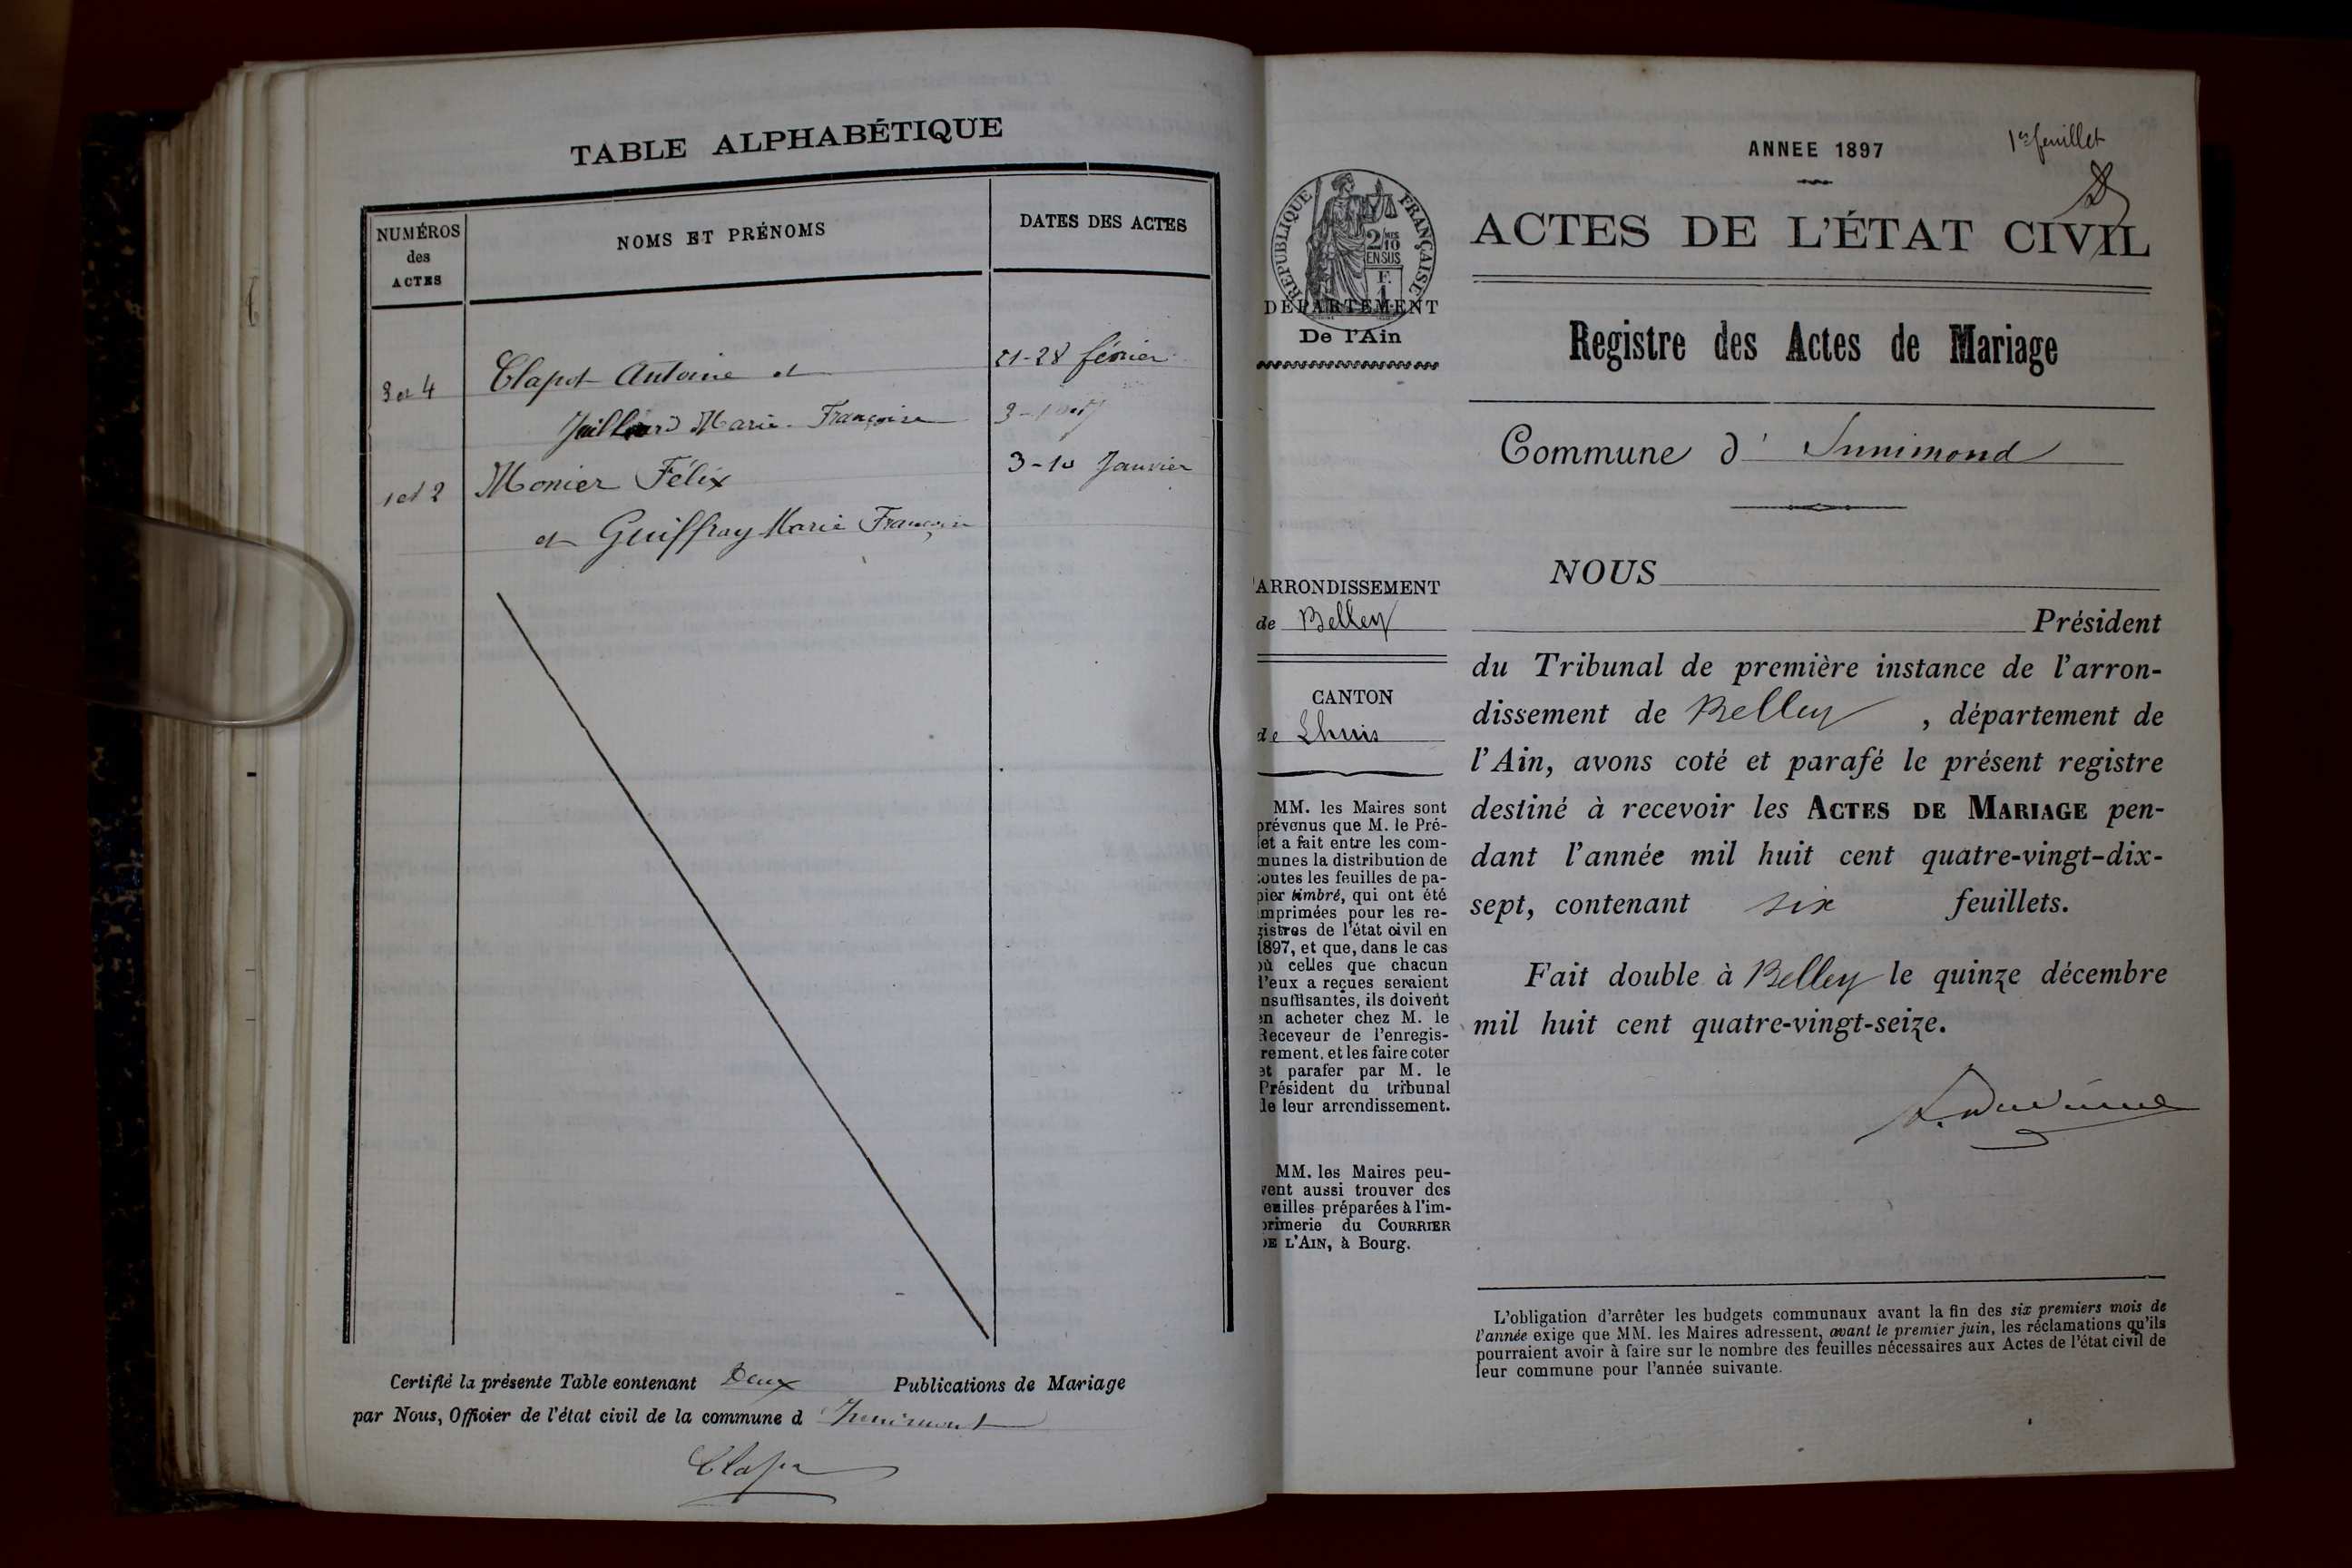 TABLE ALPHABÉTIQUE
NUMÉROS
des
ACTES
NOMS ET PRÉNOMS
DATES DES ACTES
3 et 4 Clapot Antoine et 21-28 février
Juillard Marie Françoise 3-10
1 et 2 Monier Félix 3-10 Janvier
et Guiffray Marie Françoise
Certifié la présente Table contenant Deux Publications de Mariage
par Nous, Officier de l'état civil de la commune d Innimont
ANNEE 1897
1er feuillet
RÉPUBLIQUE FRANÇAISE
2/10
EN SUS
F.
1
ACTES DE L'ÉTAT CIVIL
DÉPARTEMENT
De l'Ain
Registre des Actes de Mariage
Commune d' Innimond
ARRONDISSEMENT
de Belley
CANTON
de Lhuis
MM. les Maires sont
prévenus que M. le Pré-
fet a fait entre les com-
munes la distribution de
toutes les feuilles de pa-
pier timbré, qui ont été
imprimées pour les re-
gistres de l'état civil en
1897, et que, dans le cas
où celles que chacun
d'eux a reçues seraient
insuffisantes, ils doivent
en acheter chez M. le
Receveur de l'enregis-
rement, et les faire coter
et parafer par M. le
Président du tribunal
de leur arrondissement.
MM. les Maires peu-
vent aussi trouver des
feuilles préparées à l'im-
primerie du COURRIER
DE L'AIN, à Bourg.
NOUS
Président
du Tribunal de première instance de l'arron-
dissement de Belley , département de
l'Ain, avons coté et parafé le présent registre
destiné à recevoir les ACTES DE MARIAGE pen-
dant l'année mil huit cent quatre-vingt-dix-
sept, contenant six feuillets.
Fait double à Belley le quinze décembre
mil huit cent quatre-vingt-seize.
L'obligation d'arrêter les budgets communaux avant la fin des six premiers mois de
l'année exige que MM. les Maires adressent, avant le premier juin, les réclamations qu'ils
pourraient avoir à faire sur le nombre des feuilles nécessaires aux Actes de l'état civil de
leur commune pour l'année suivante.